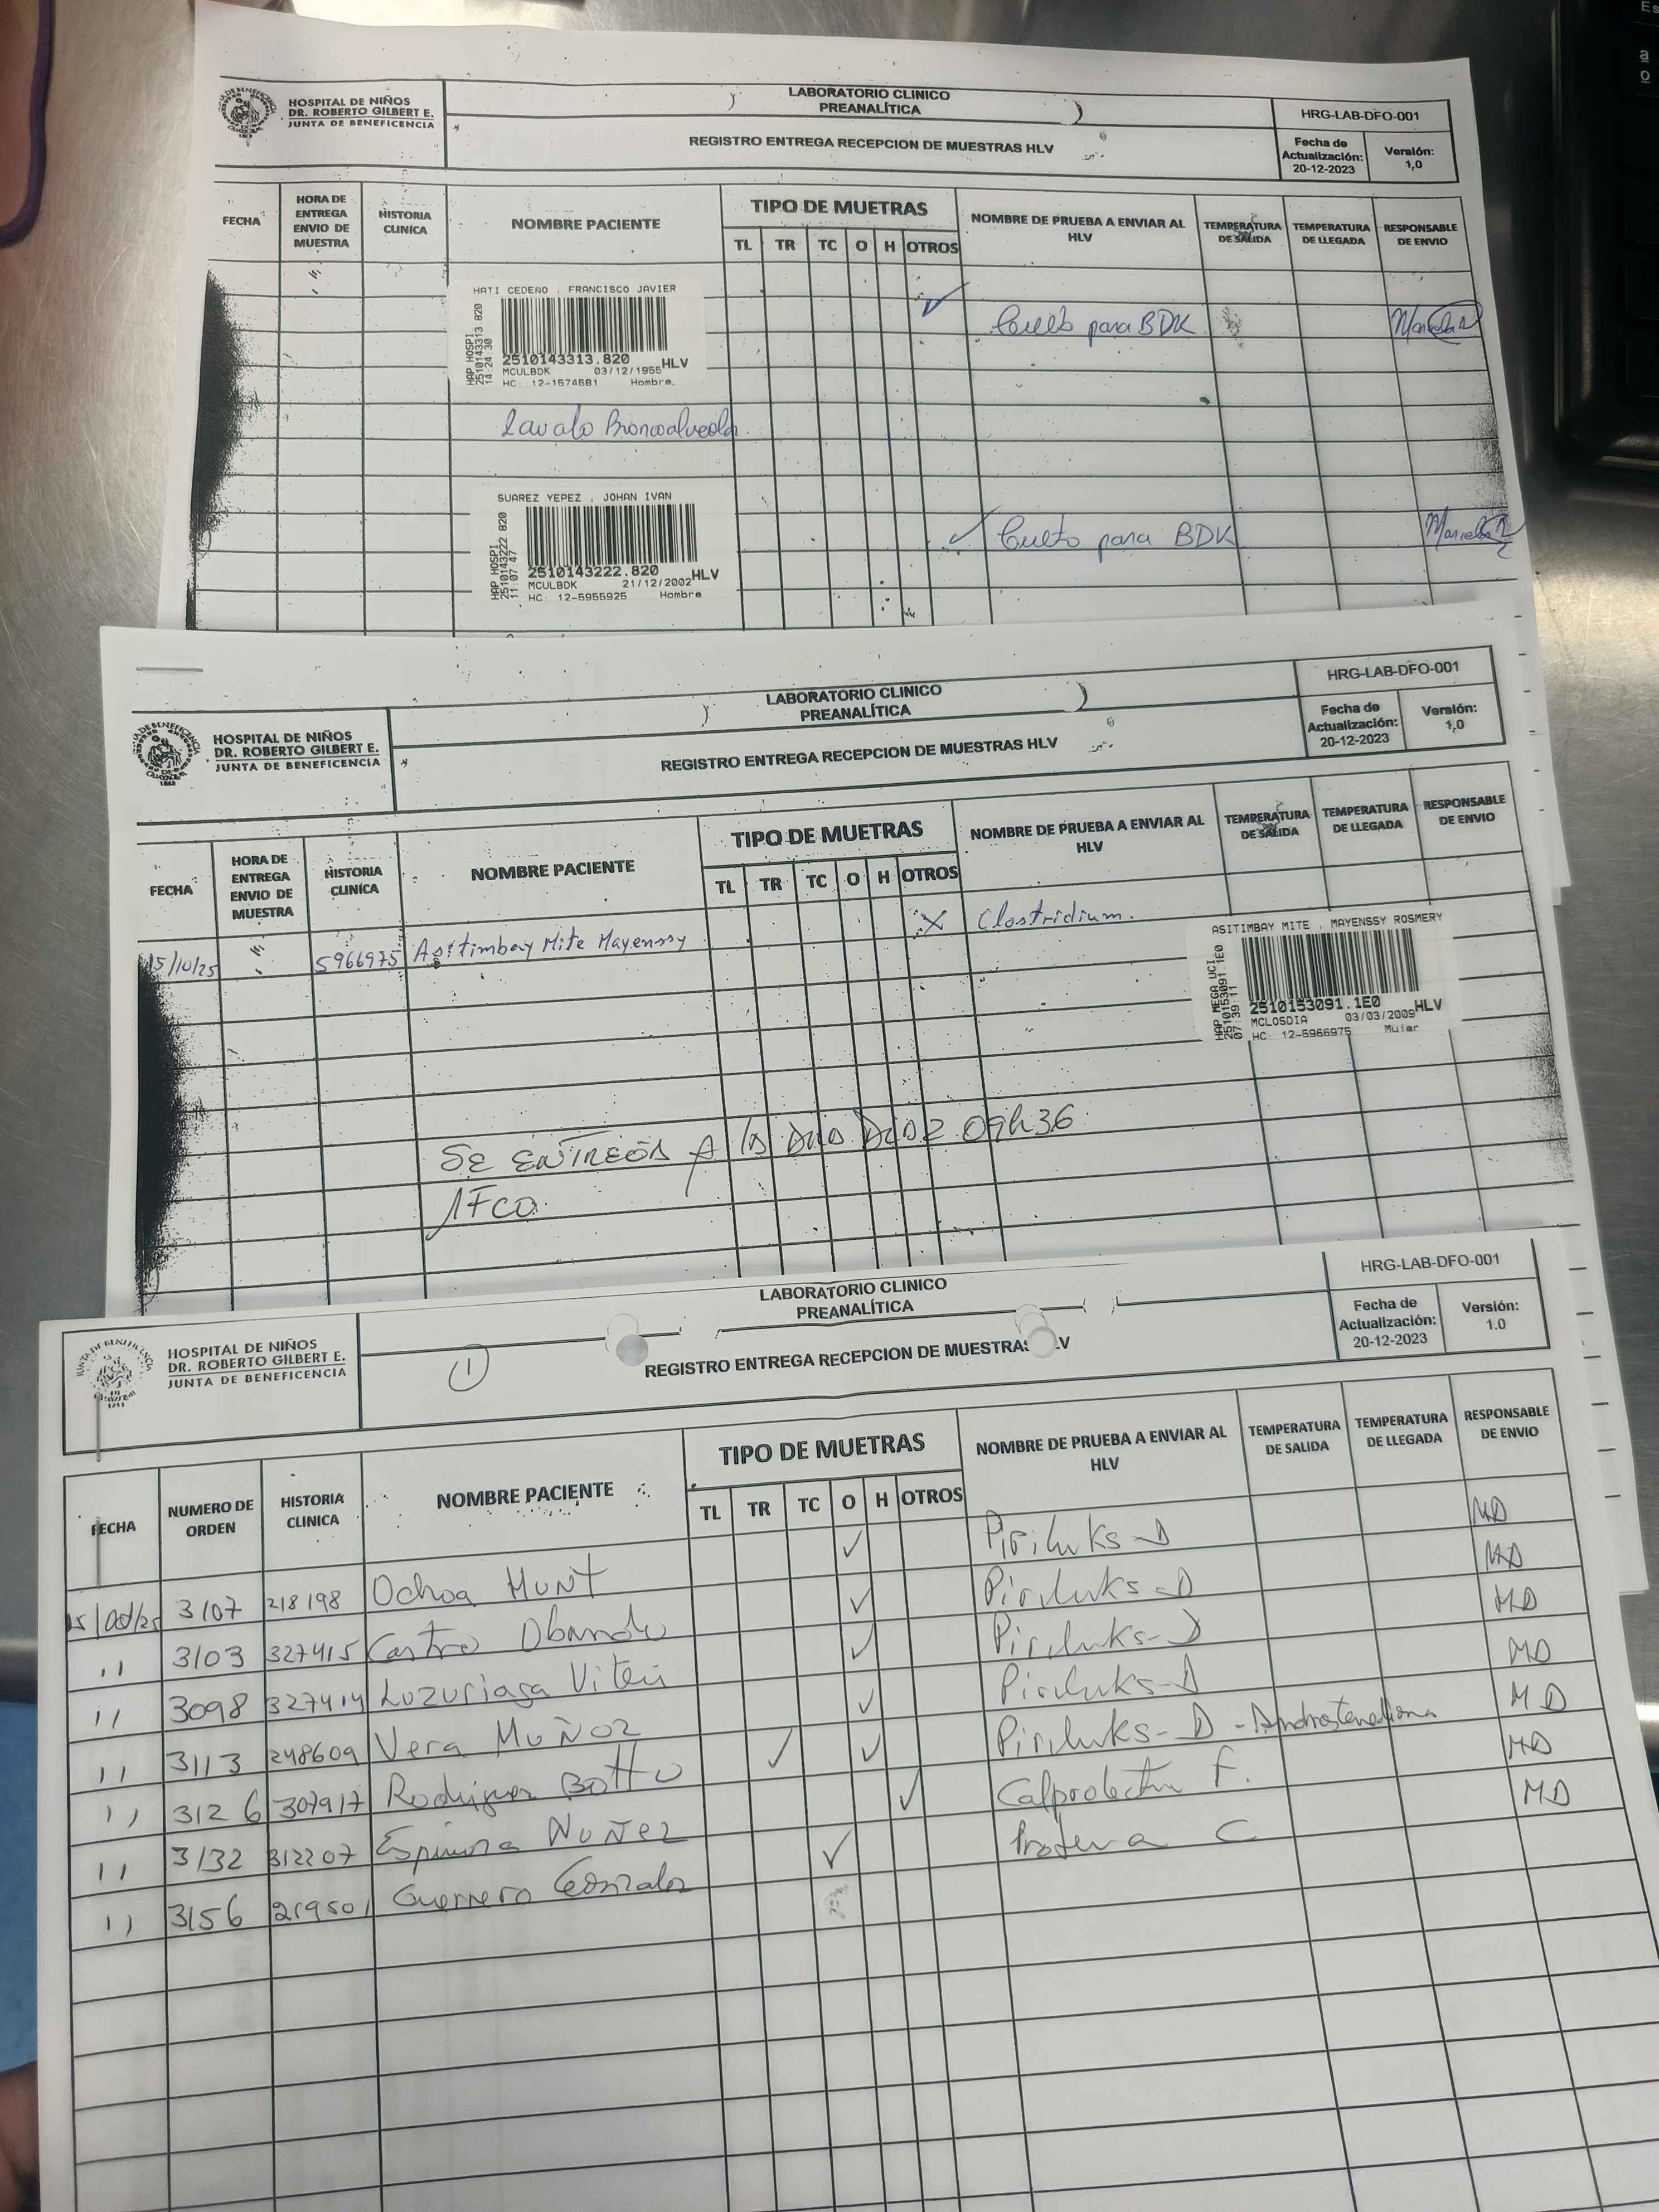 HOSPITAL DE NIÑOS
DR. ROBERTO GILBERT E.
JUNTA DE BENEFICENCIA
LABORATORIO CLINICO
PREANALÍTICA
REGISTRO ENTREGA RECEPCION DE MUESTRAS HLV
HRG-LAB-DFO-001
Fecha de Actualización: 20-12-2023
Versión: 1,0
FECHA
HORA DE ENTREGA ENVIO DE MUESTRA
HISTORIA CLINICA
NOMBRE PACIENTE
TIPO DE MUETRAS
TL TR TC O H OTROS
NOMBRE DE PRUEBA A ENVIAR AL HLV
TEMPERATURA DE SALIDA
TEMPERATURA DE LLEGADA
RESPONSABLE DE ENVIO
HATI CEDEÑO , FRANCISCO JAVIER
HAP HOSPI
2510143313 820
14 24 30
2510143313.820 HLV
MCULBDK 03/12/1955
HC: 12-1574581 Hombre.
✓ para BDK
SUAREZ YEPEZ , JOHAN IVAN
HAP HOSPI
2510143222 820
11 07 47
2510143222.820 HLV
MCULBDK 21/12/2002
HC: 12-5955925 Hombre
✓ para BDK
HOSPITAL DE NIÑOS
DR. ROBERTO GILBERT E.
JUNTA DE BENEFICENCIA
LABORATORIO CLINICO
PREANALÍTICA
REGISTRO ENTREGA RECEPCION DE MUESTRAS HLV
HRG-LAB-DFO-001
Fecha de Actualización: 20-12-2023
Versión: 1,0
FECHA
HORA DE ENTREGA ENVIO DE MUESTRA
HISTORIA CLINICA
NOMBRE PACIENTE
TIPO DE MUETRAS
TL TR TC O H OTROS
NOMBRE DE PRUEBA A ENVIAR AL HLV
TEMPERATURA DE SALIDA
TEMPERATURA DE LLEGADA
RESPONSABLE DE ENVIO
15/10/25 5966975 Asitimbay Mite Mayenssy X Clostridium.
ASITIMBAY MITE , MAYENSSY ROSMERY
HAP MEGA UCI
2510153091 1E0
07:39:11
2510153091.1E0 HLV
MCLOSDIA 03/03/2009
HC: 12-5966975 Mujer
SE ENTREGA A 09h36
HOSPITAL DE NIÑOS
DR. ROBERTO GILBERT E.
JUNTA DE BENEFICENCIA
1
LABORATORIO CLINICO
PREANALÍTICA
REGISTRO ENTREGA RECEPCION DE MUESTRAS
HRG-LAB-DFO-001
Fecha de Actualización: 20-12-2023
Versión: 1.0
FECHA
NUMERO DE ORDEN
HISTORIA CLINICA
NOMBRE PACIENTE
TIPO DE MUETRAS
TL TR TC O H OTROS
NOMBRE DE PRUEBA A ENVIAR AL HLV
TEMPERATURA DE SALIDA
TEMPERATURA DE LLEGADA
RESPONSABLE DE ENVIO
15/Oct/25 3107 218198 Ochoa Munt ✓ Piriluks-D MD
,, 3103 327415 Castro Obando ✓ Piriluks-D MD
,, 3098 327414 Luzuriaga Viteri ✓ Piriluks-D MD
,, 3113 248609 Vera Muñoz ✓ Piriluks-D MD
,, 3126 307917 Rodriguez Botto ✓ ✓ Piriluks-D - Androstenediona MD
,, 3132 312207 Espinoza Nuñez ✓ Calprotectin F. MD
,, 3156 219501 Guerrero Gonzalez ✓ Proteina C MD